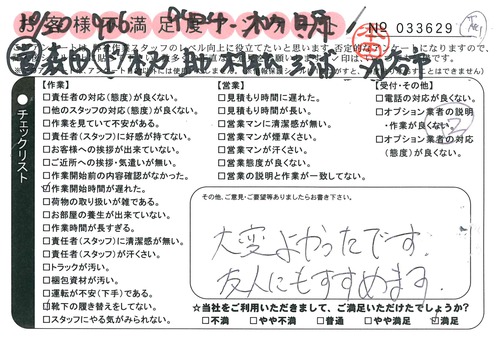 お客様不満足度アンケート
№ 033629
チェックリスト
【作業】
□責任者の対応(態度)が良くない。
□他のスタッフの対応(態度)が良くない。
□作業を見ていて不安がある。
□責任者(スタッフ)に好感が持てない。
□お客様への挨拶が出来ていない。
□ご近所への挨拶・気遣いが無い。
□作業開始前の内容確認がなかった。
☑作業開始時間が遅れた。
□荷物の取り扱いが雑である。
□お部屋の養生が出来ていない。
□作業時間が長すぎる。
□責任者(スタッフ)に清潔感が無い。
□責任者(スタッフ)が汗くさい。
□トラックが汚い。
□梱包資材が汚い。
□運転が不安(下手)である。
☑靴下の履き替えをしてない。
□スタッフにやる気がみられない。
【営業】
□見積もり時間に遅れた。
□見積もり時間が長い。
□営業マンに清潔感が無い。
□営業マンが煙草くさい。
□営業マンが汗くさい。
□営業態度が良くない。
□営業の説明と作業が一致してない。
【受付・その他】
□電話の対応が良くない。
□オプション業者の説明
・作業が良くない。
□オプション業者の対応
(態度)が良くない。
その他、ご意見・ご要望等ありましたらお書き下さい。
大変よかったです。
友人にもすすめます。
★当社をご利用いただきまして、ご満足いただけたでしょうか?
□不満 □やや不満 □普通 □やや満足 ☑満足